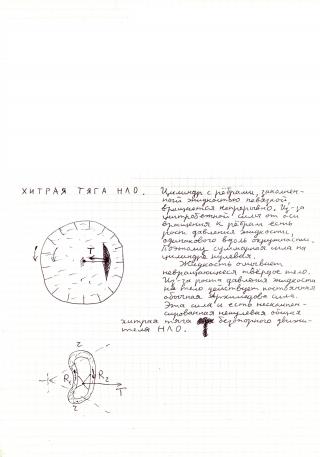 ХИТРАЯ ТЯГА НЛО.
Цилиндр с рёбрами, заполнен-
ный жидкостью вязкой,
вращается непрерывно. Из-за
центробежной силы от оси
вращения к рёбрам есть
рост давления жидкости,
одинакового вдоль окружности.
Поэтому суммарная сила на
цилиндре нулевая.
Жидкость омывает
невращающееся твёрдое тело.
Из-за роста давления жидкости
на тело действует постоянная
обычная Архимедова сила.
Эта сила и есть нескомпен-
сированная ненулевая общая
хитрая тяга T безопорного движи-
теля НЛО.
T
R₁
R₂
T